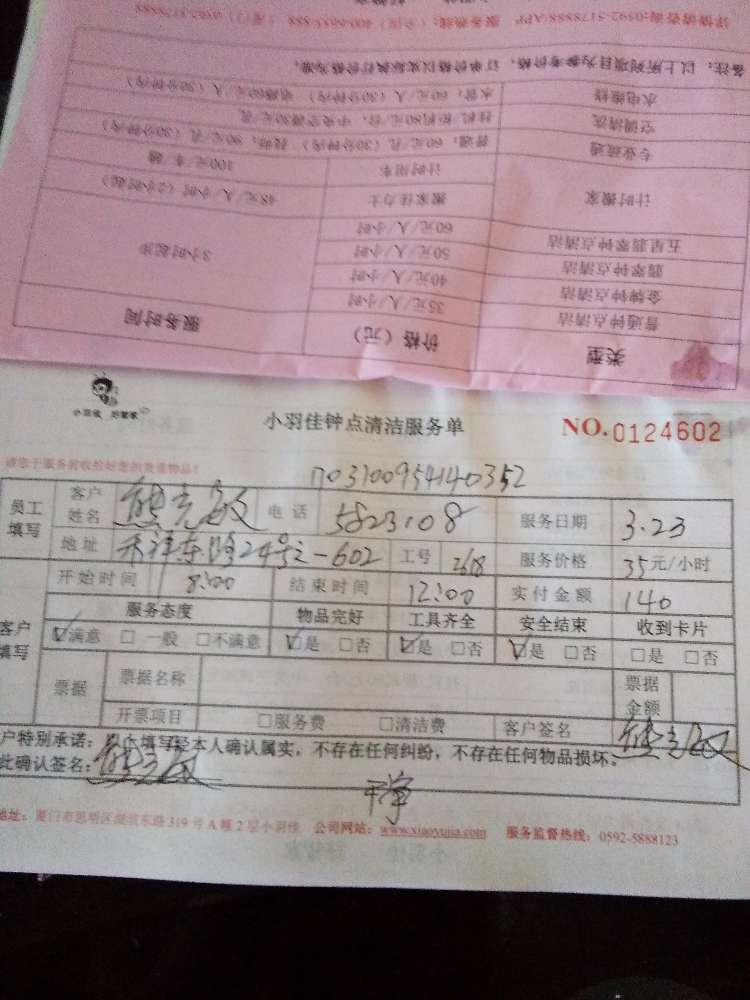 详情请咨询:0592-5178888/APP 服务热线:(全国)400-6655-888 (厦门) 0592-5178888
备注:以上所列项目为参考价格,订单价格以实际执行价格为准。
水电维修 水管:60元/人(30分钟内) 电路60元/人(30分钟内)
空调清洗 挂机/柜机80元/台,中央空调30元/孔
专业疏通 普通:60元/孔(30分钟内) 特殊:90元/孔(30分钟内)
计时用车 100元/车/趟
计时搬家 搬家佳力士 48元/人/小时(2小时起)
五星翡翠钟点清洁 60元/人/小时
翡翠钟点清洁 50元/人/小时 3小时起步
金牌钟点清洁 40元/人/小时
普通钟点清洁 35元/人/小时
类型 价格(元) 服务时间
小羽佳 好管家
小羽佳钟点清洁服务单 NO.0124602
请您于服务前收拾好您的贵重物品!
703100954140352
员工填写 客户姓名 电话 5823108 服务日期 3.23
地址 禾祥东路24号之-602 工号 2618 服务价格 35元/小时
开始时间 8:00 结束时间 12:00 实付金额 140
客户填写 服务态度 物品完好 工具齐全 安全结束 收到卡片
☑满意 □一般 □不满意 ☑是 □否 ☑是 □否 ☑是 □否 □是 □否
票据 票据名称 票据金额
开票项目 □服务费 □清洁费 客户签名
户特别承诺: 填写经本人确认属实,不存在任何纠纷,不存在任何物品损坏。
此确认签名:
干净
地址:厦门市思明区湖滨东路319号A幢2层小羽佳 公司网站:www.xiaoyujia.com 服务监督热线:0592-5888123